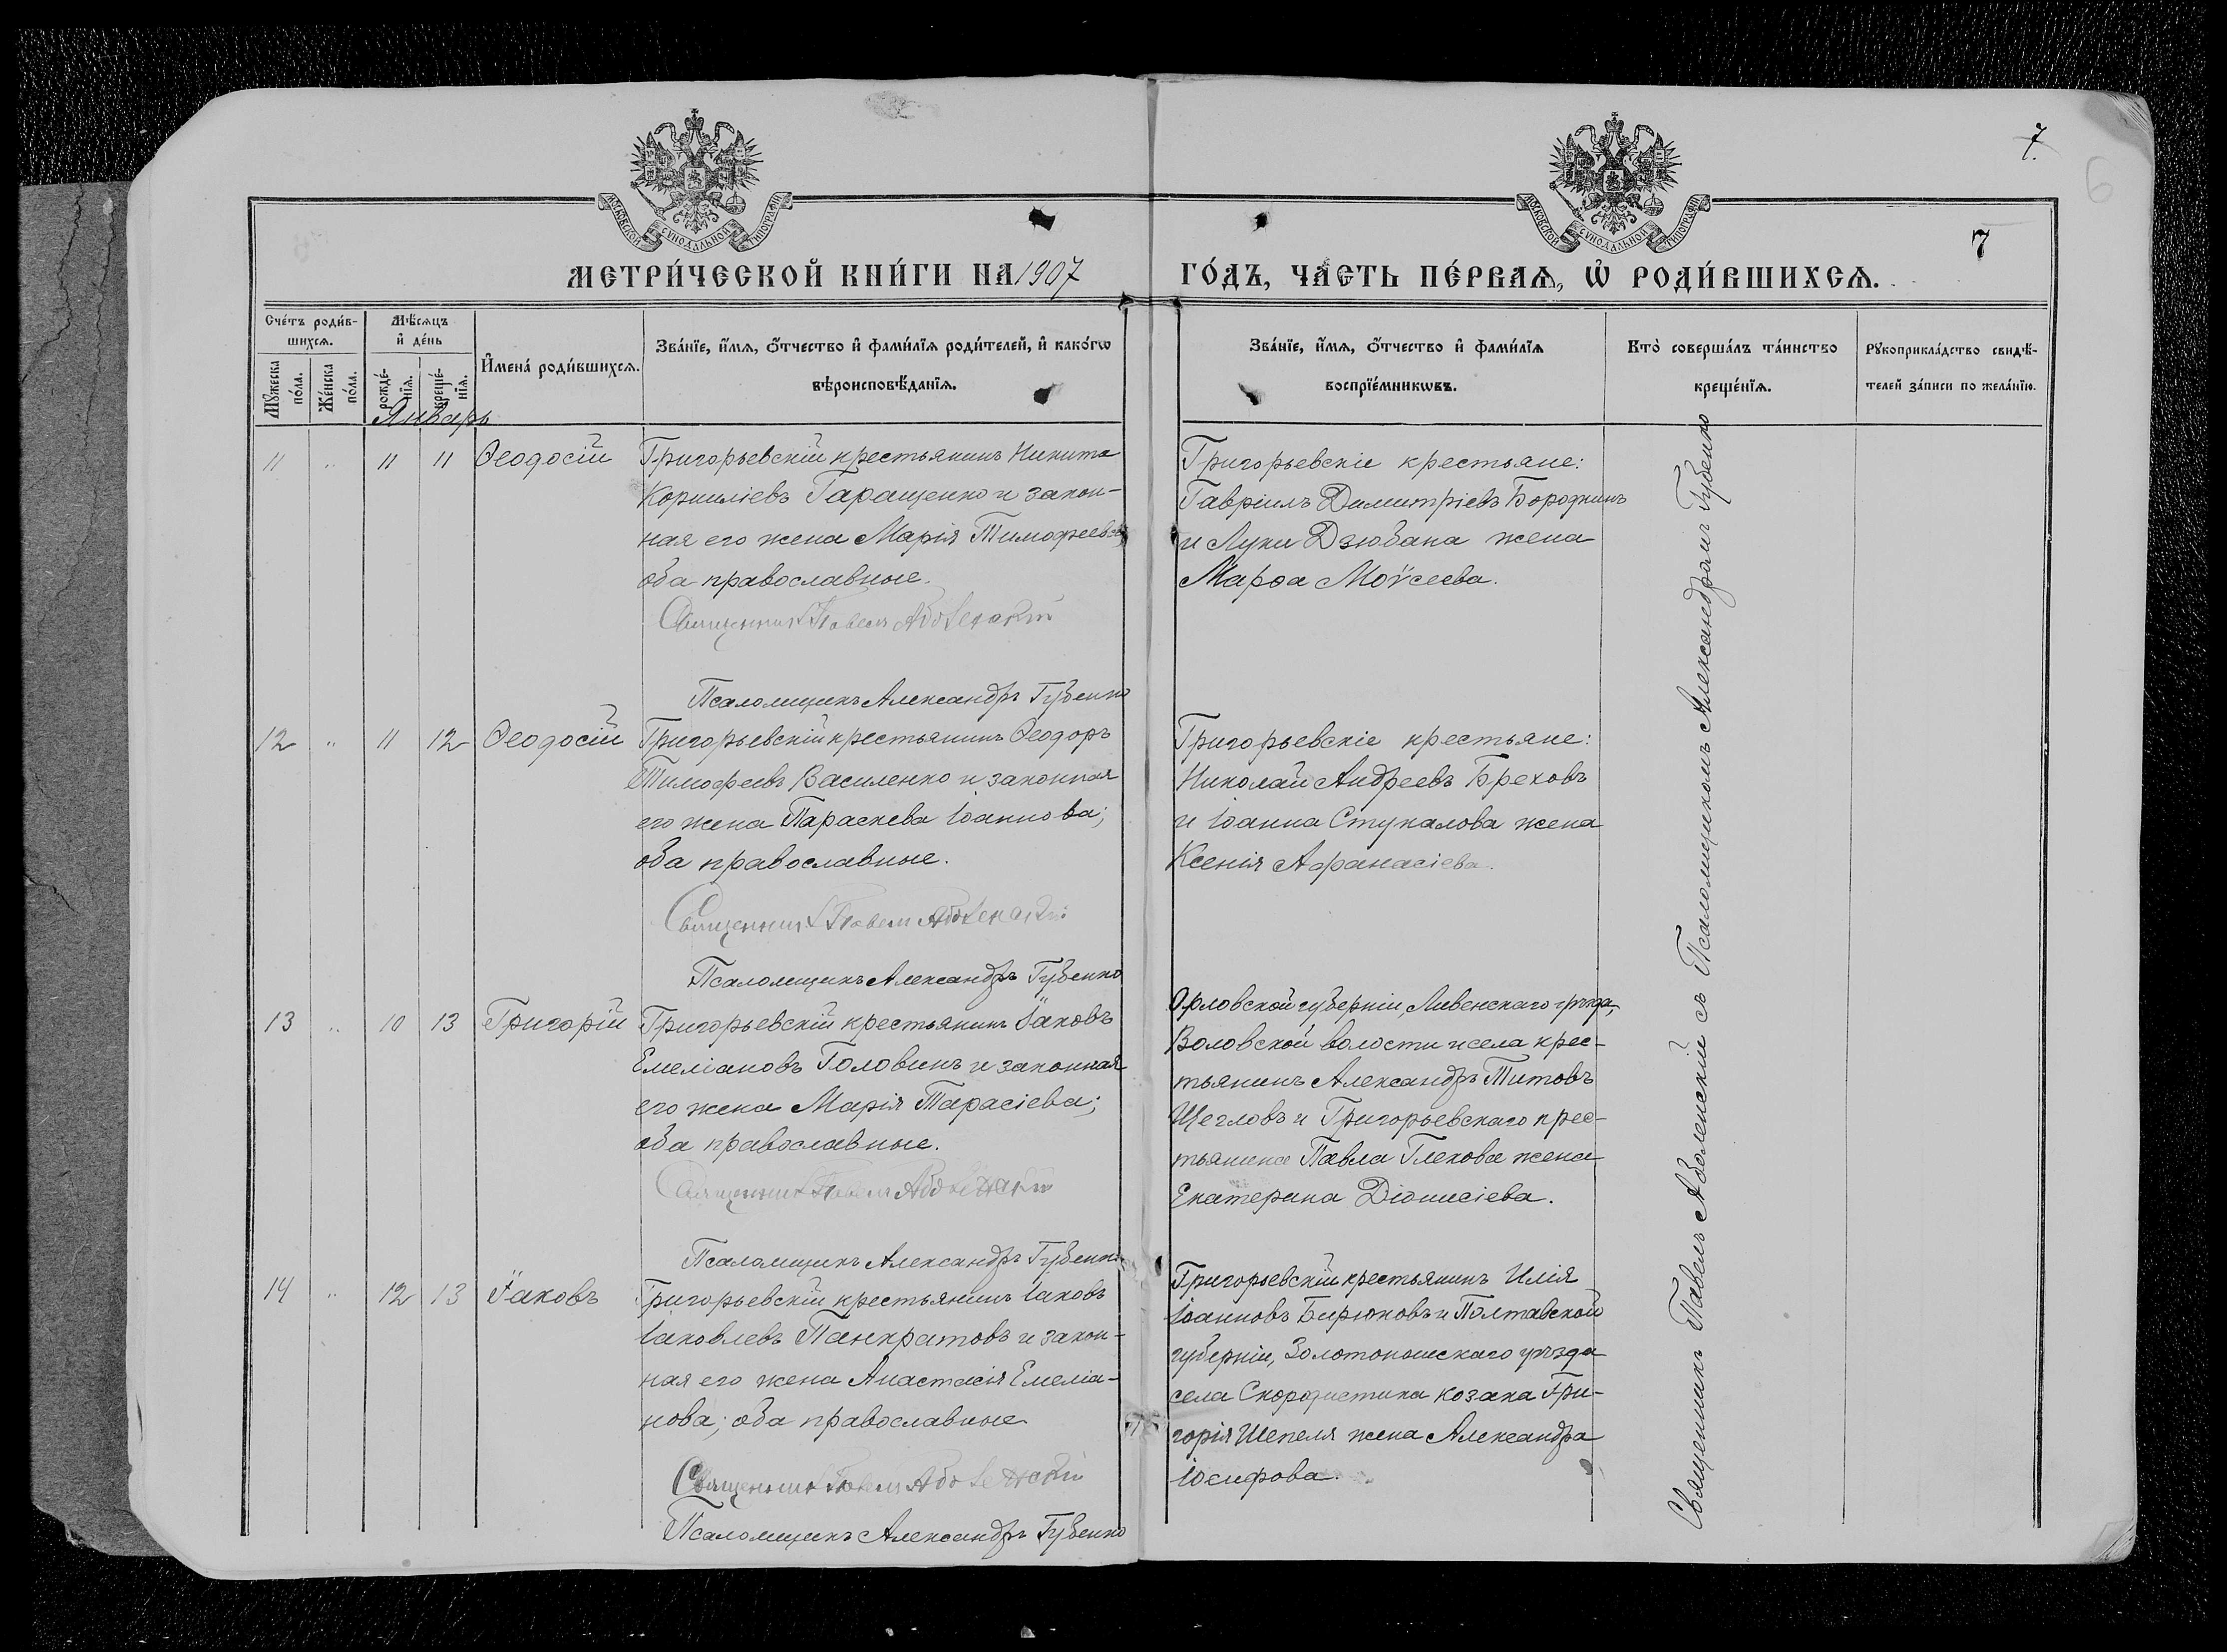 7.
6
МОСКОВСКОЙ СѴНОДАЛЬНОЙ ТИПОГРАФІИ
МОСКОВСКОЙ СѴНОДАЛЬНОЙ ТИПОГРАФІИ
7
МЕТРИ́ЧЕСКОЙ КНИ́ГИ НА 1907
ГО́ДЪ, ЧА́СТЬ ПЕ́РВАѦ, Ѡ҆ РОДИ́ВШИХСѦ.
Сче́тъ роди́в-
шихсѧ.
Мꙋ́жеска
по́ла.
Же́нска
по́ла.
Мѣ́сѧцъ
и҆ де́нь
рожде́-
нїѧ.
креще́-
нїѧ.
И҆мена̀ роди́вшихсѧ.
Зва́нїе, и҆́мѧ, ѻ҆́тчество и҆ фами́лїѧ роди́телей, и҆ како́гѡ
вѣроисповѣ́данїѧ.
Зва́нїе, и҆́мѧ, ѻ҆́тчество и҆ фами́лїѧ
воспрїе́мникѡвъ.
Кто̀ соверша́лъ та́инство
креще́нїѧ.
Рꙋкоприкла́дство свидѣ́-
телей за́писи по жела́нїю.
Январь
11 " 11 11 Ѳеодосій
Григорьевскій крестьянинъ Никита
Корниліевъ Гаращенко и закон-
ная его жена Марія Тимофеева;
оба православные.
Священникъ Павелъ Аболенскій
Псаломщикъ Александръ Губенко
Григорьевскіе крестьяне:
Гавріилъ Димитріевъ Бородкинъ
и Луки Дзюбана жена
Марѳа Моѵсеева.
12 " 11 12 Ѳеодосій
Григорьевскій крестьянинъ Ѳеодоръ
Тимофеевъ Василенко и законная
его жена Параскева Іоаннова;
оба православные.
Священникъ Павелъ Аболенскій
Псаломщикъ Александръ Губенко
Григорьевскіе крестьяне:
Николай Андреевъ Бреховъ
и Іоанна Стукалова жена
Ксенія Афанасіева.
13 " 10 13 Григорій
Григорьевскій крестьянинъ Іаковъ
Емеліановъ Головинъ и законная
его жена Марія Тарасіева;
оба православные.
Священникъ Павелъ Аболенскій
Псаломщикъ Александръ Губенко
Орловской губерніи, Ливенскаго уѣзда,
Воловской волости и села крес-
тьянинъ Александръ Титовъ
Щегловъ и Григорьевскаго крес-
тьянина Павла Глекова жена
Екатерина Діонисіева.
14 " 12 13 Іаковъ
Григорьевскій крестьянинъ Іаковъ
Іаковлевъ Панкратовъ и закон-
ная его жена Анастасія Емеліа-
нова; оба православные
Священникъ Павелъ Аболенскій
Псаломщикъ Александръ Губенко
Григорьевскій крестьянинъ Илія
Іоанновъ Бирюковъ и Полтавской
губерніи, Золотоношскаго уѣзда
села Скородистика козака Гри-
горія Шепеля жена Александра
Іосифова.
Священникъ Павелъ Аболенскій съ Псаломщикомъ Александромъ Губенко